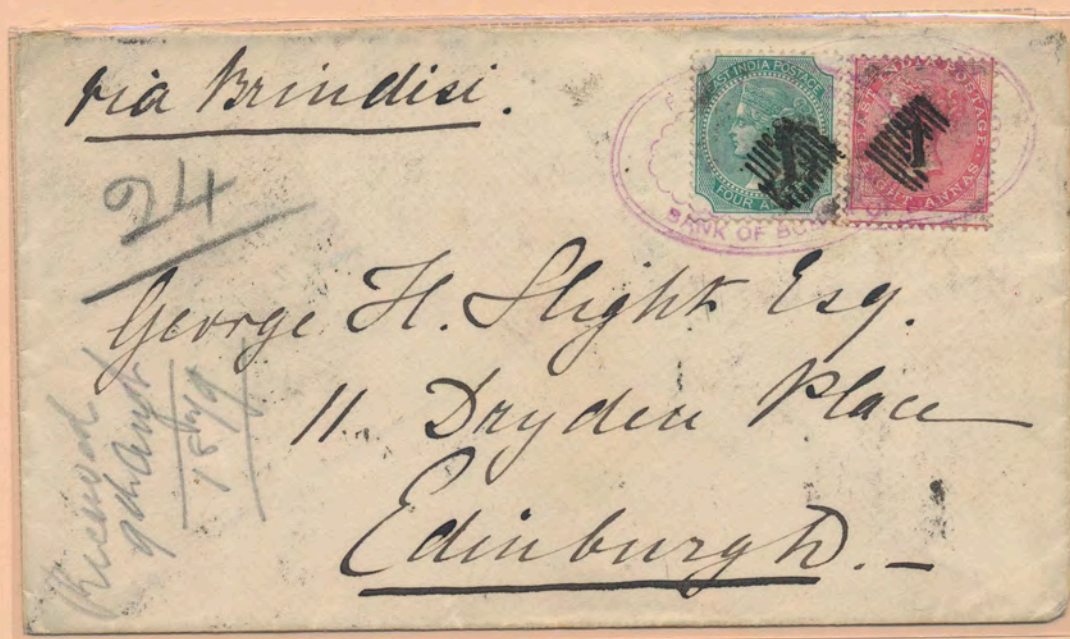 via Brindisi.
EAST INDIA POSTAGE
FOUR A
POSTAGE
GHT ANNAS
1
1
BANK OF
24
George H. Slight Esq.
11. Dryden Place
Edinburgh. -
Received
9th Augt
1879